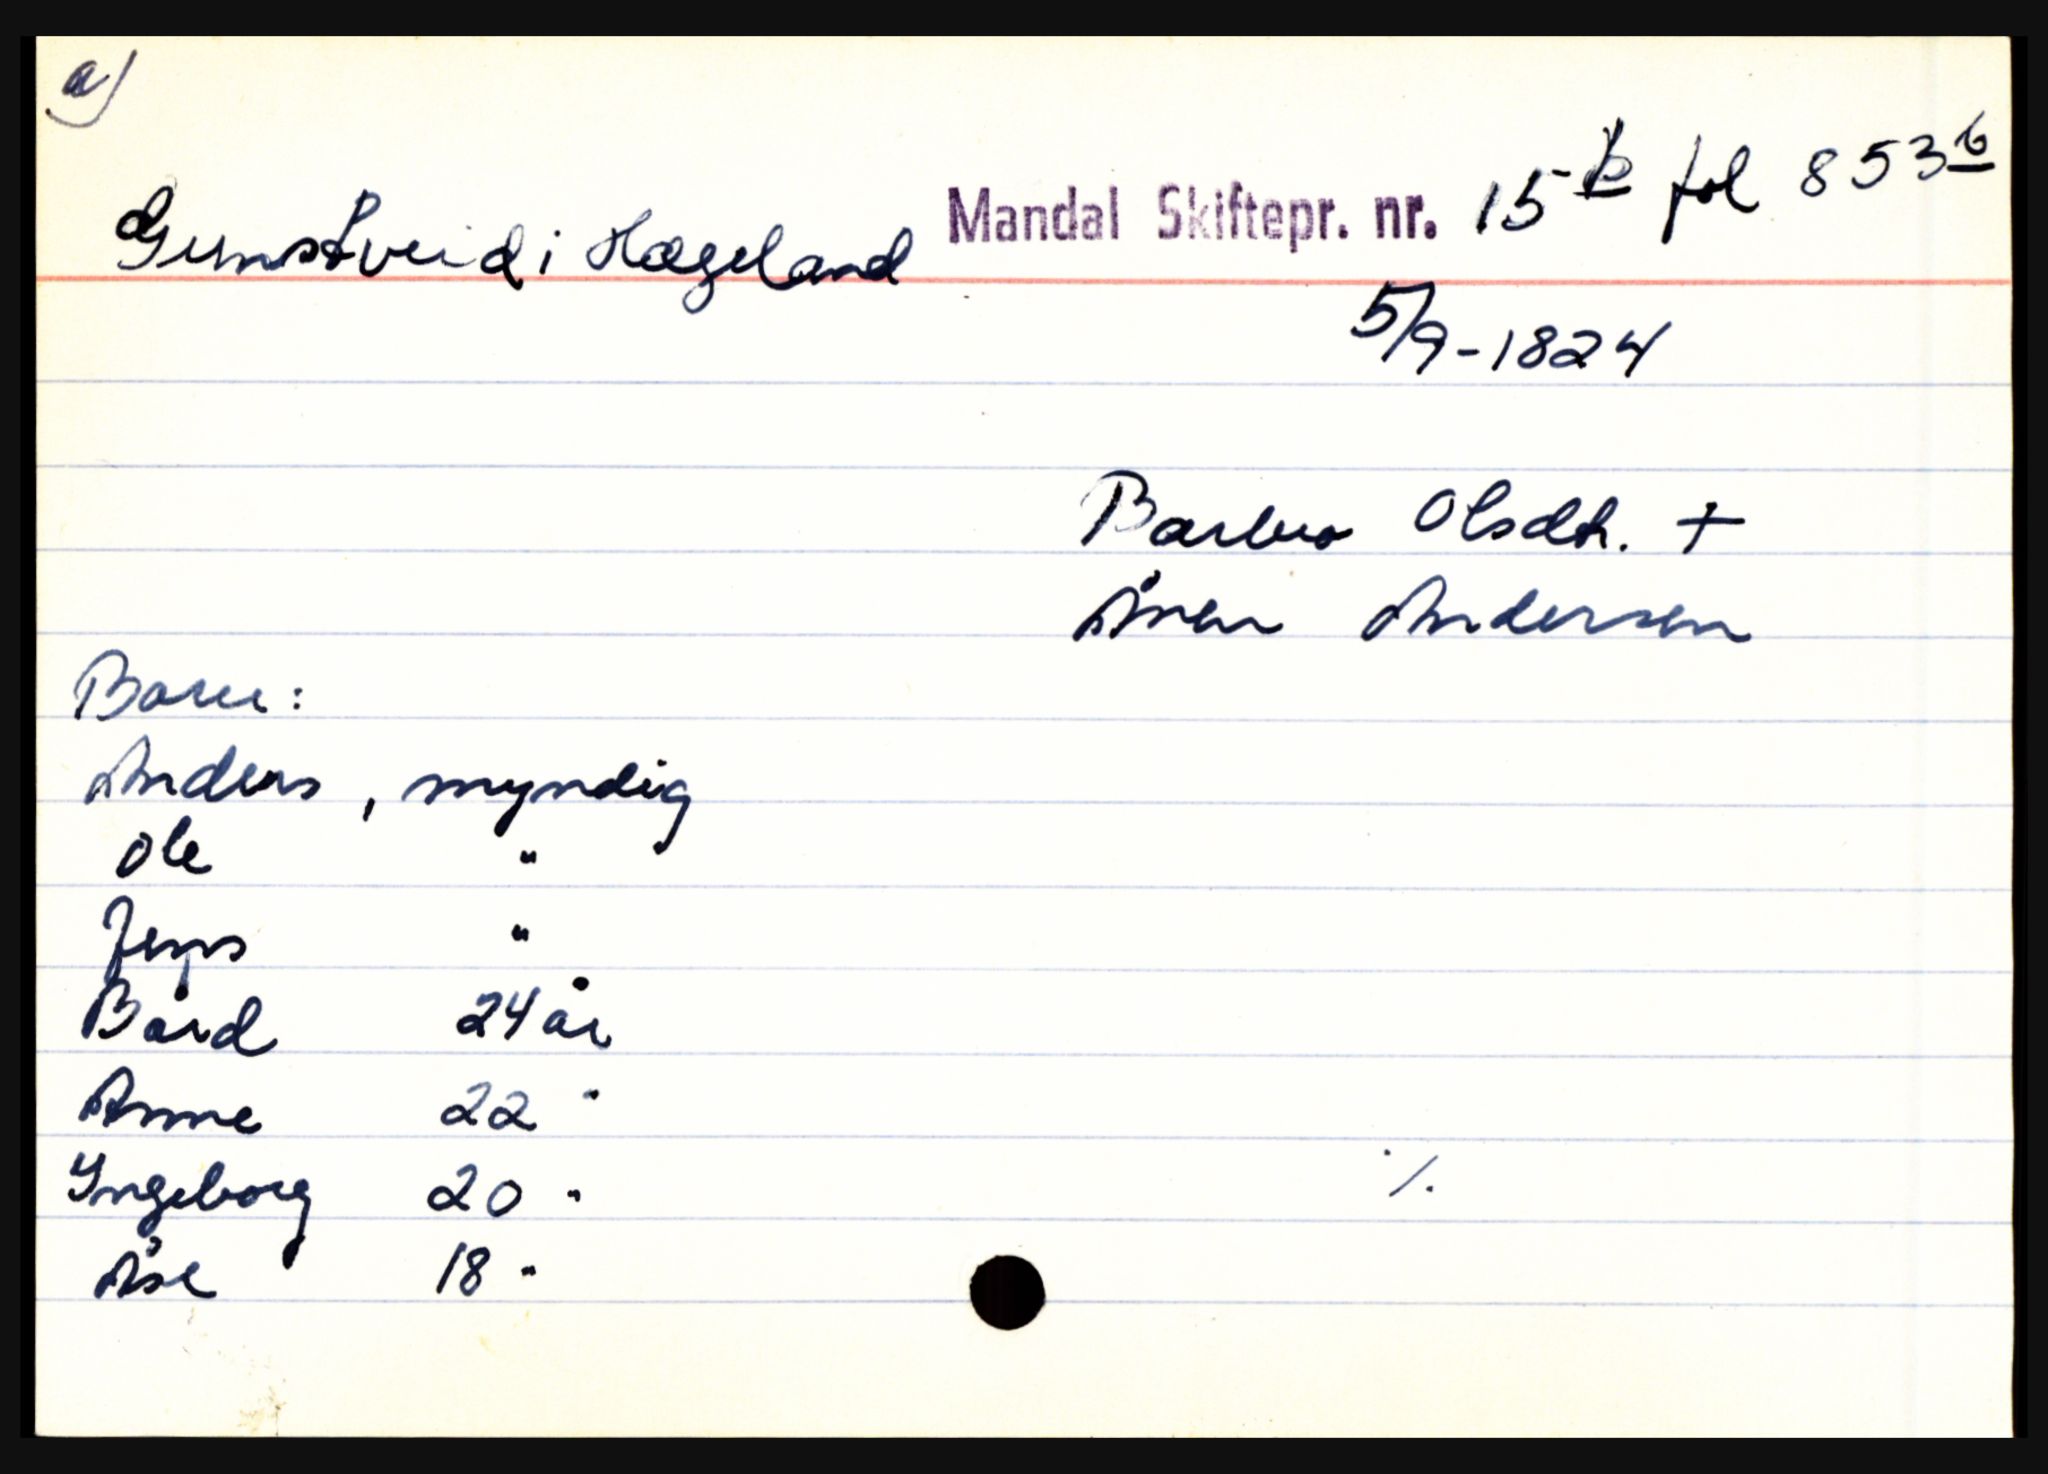 a)
Gunstveid i Hægeland Mandal Skiftepr. nr. 15 b fol 853 b
5/9-1824
Barbro Olsdtr. +
Ånen Andersen
Barn:
Anders, myndig
Ole "
Jens "
Bård 24 år
Anne 22 "
Ingeborg 20 "
Åse 18 "
./.